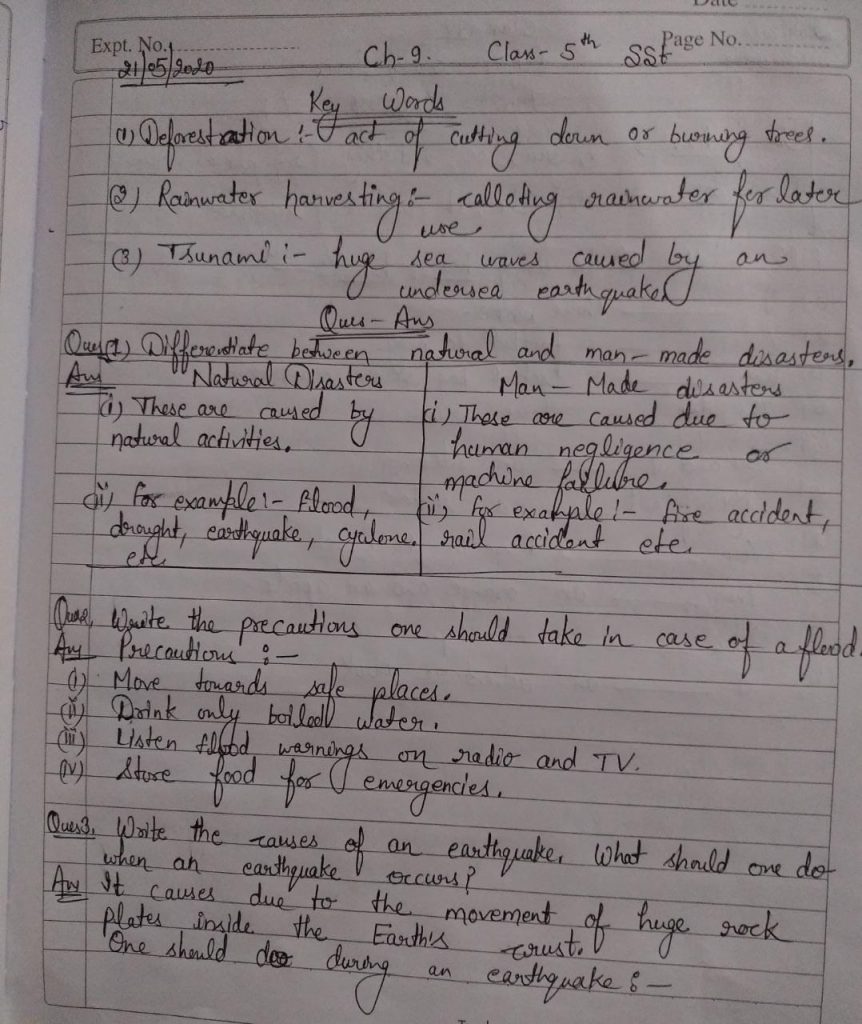 Date
Expt. No. Ch-9. Class- 5th SSt Page No.
21/05/2020
Key Words
(1) Deforestration :- act of cutting down or burning trees.
(2) Rainwater harvesting :- calloting rainwater for later
use.
(3) Tsunami :- huge sea waves caused by an
undersea earthquake
Ques - Ans
Ques(1) Differentiate between natural and man-made disasters.
Ans Natural Disasters
(i) These are caused by
natural activities.
(ii) For example :- flood,
drought, earthquake, cyclone.
etc
Man - Made disasters
(i) These are caused due to
human negligence or
machine failure.
(ii) For example :- fire accident,
rail accident etc.
Ques2. Write the precautions one should take in case of a flood.
Ans Precautions :-
(i) Move towards safe places.
(ii) Drink only boiled water.
(iii) Listen flood warnings on radio and TV.
(iv) Store food for emergencies.
Ques3. Write the causes of an earthquake. What should one do
when an earthquake occurs?
Ans It causes due to the movement of huge rock
plates inside the Earth's crust.
One should do during an earthquake :-